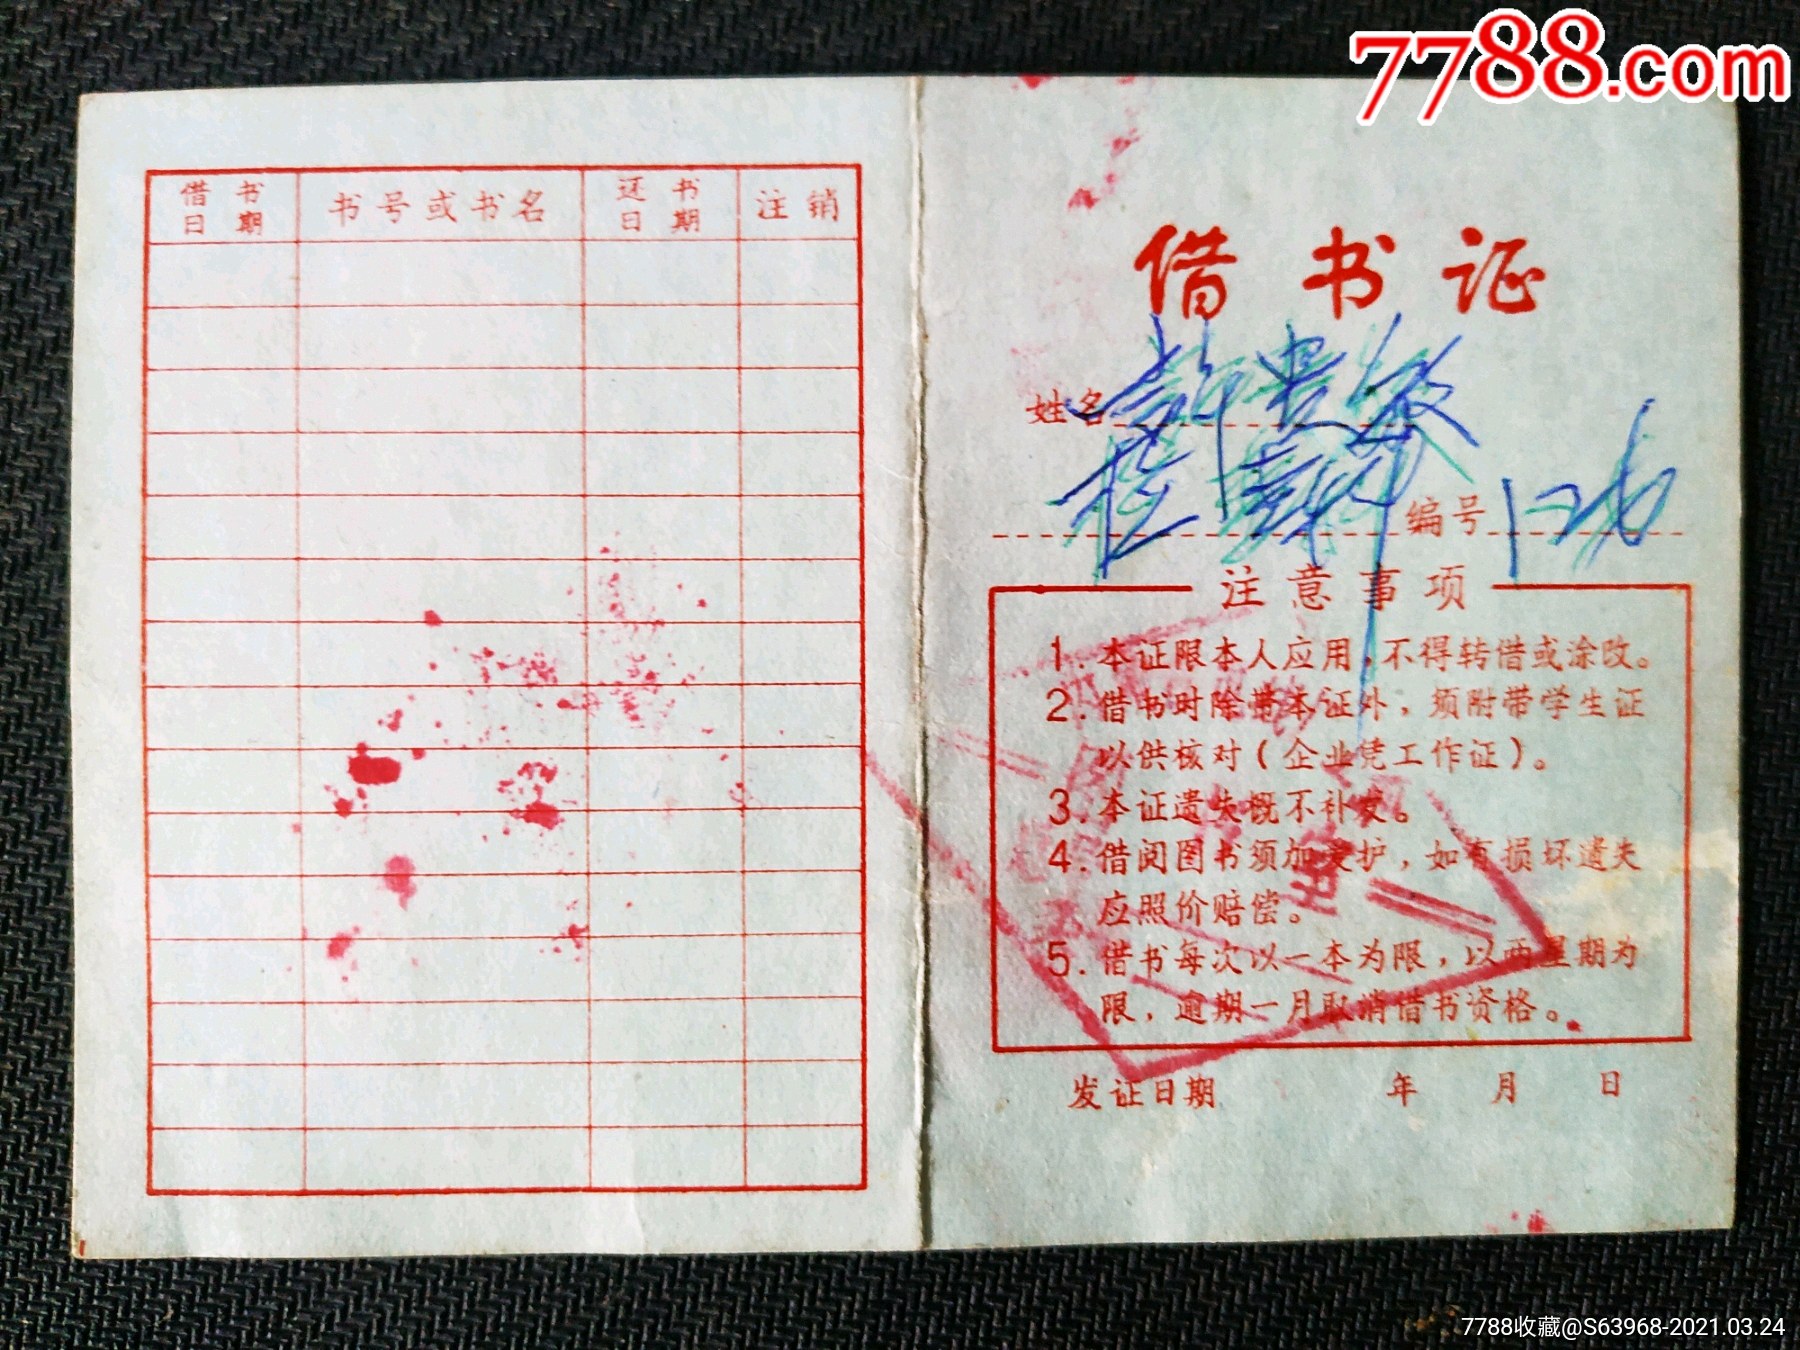 7788.com
借书日期 书号或书名 还书日期 注销
借书证
姓名
编号
注意事项
1.本证限本人应用,不得转借或涂改。
2.借书时除带本证外,须附带学生证
以供核对(企业凭工作证)。
3.本证遗失概不补发。
4.借阅图书须加爱护,如有损坏遗失
应照价赔偿。
5.借书每次以一本为限,以两星期为
限,逾期一月取消借书资格。
发证日期 年 月 日
7788收藏@S63968-2021.03.24